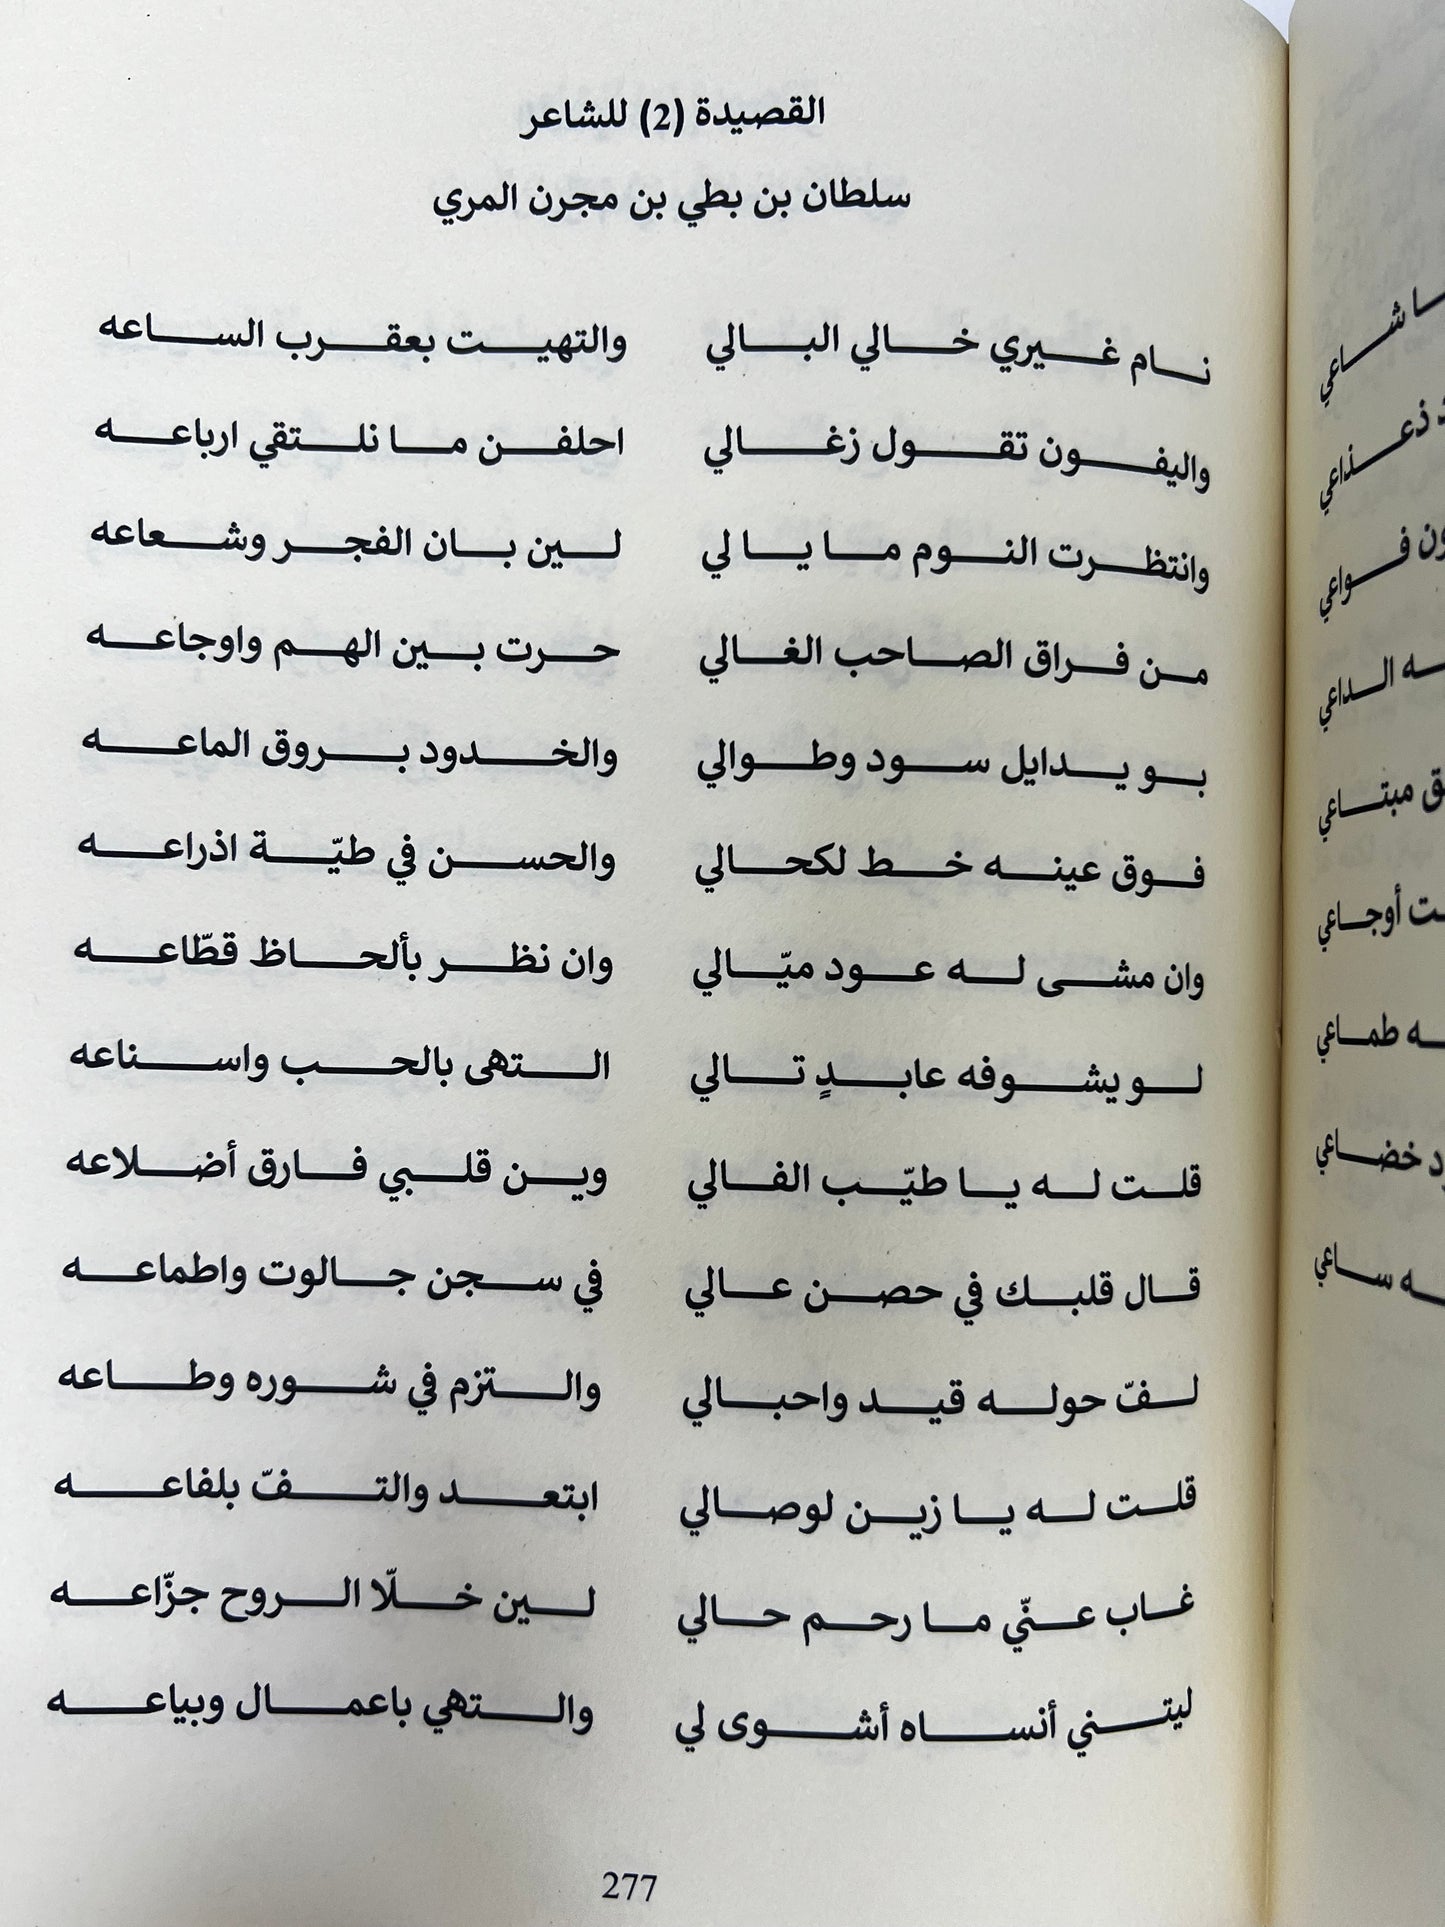 القصيدة (2) للشاعر
سلطان بن بطي بن مجرن المري
نام غيري خالي البالي والتهيت بعقرب الساعه
واليفون تقول زغالي احلفن ما نلتقي ارباعه
وانتظرت النوم ما يالي لين بان الفجر وشعاعه
من فراق الصاحب الغالي حرت بين الهم واوجاعه
بو يدايل سود وطوالي والخدود بروق الماعه
فوق عينه خط لكحالي والحسن في طيّة اذراعه
وان مشى له عود ميّالي وان نظر بألحاظ قطّاعه
لو يشوفه عابدٍ تالي التهى بالحب واسناعه
قلت له يا طيّب الفالي وين قلبي فارق أضلاعه
قال قلبك في حصن عالي في سجن جالوت واطماعه
لفّ حوله قيد واحبالي والتزم في شوره وطاعه
قلت له يا زين لوصالي ابتعد والتفّ بلفاعه
غاب عنّي ما رحم حالي لين خلّا الروح جزّاعه
ليتني أنساه أشوى لي والتهي باعمال وبياعه
277
ا شاعي
ذعذاعي
ون فواعي
ه الداعي
ق مبتاعي
ت أوجاعي
ه طماعي
د خضاعي
ه ساعي